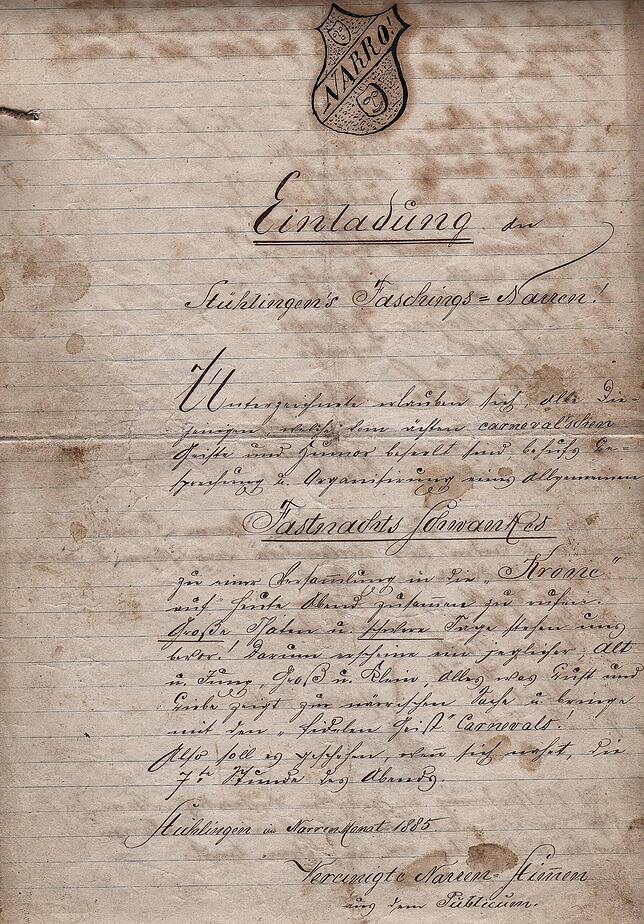 NARRO!
Einladung der
Stühlingen's Faschings=Narren!
Unterzeichnete erlauben sich, alle Die-
jenigen, welche vom ächten carneval'schen
Geiste und Humor beseelt sind, behufs Be=
sprechung u. Organisirung eines Allgemeinen
Fastnachts Schwankes
zu einer Versammlung in die „Krone“
auf heute Abend zusammen zu rufen.
Große Thaten u. schwere Tage stehen uns
bevor! Darum erscheine ein jeglicher, Alt
u. Jung, Groß u. Klein, Alles was Lust und
Liebe zeigt zur närrischen Sache u. bringe
mit den „fidelen Geist“ Carnevals!
Also soll es geschehen, wenn sich nahet, die
7te Stunde des Abends.
Stühlingen im NarrenMonat 1885.
Vereinigte Narren=Stimmen
aus dem Publicum.